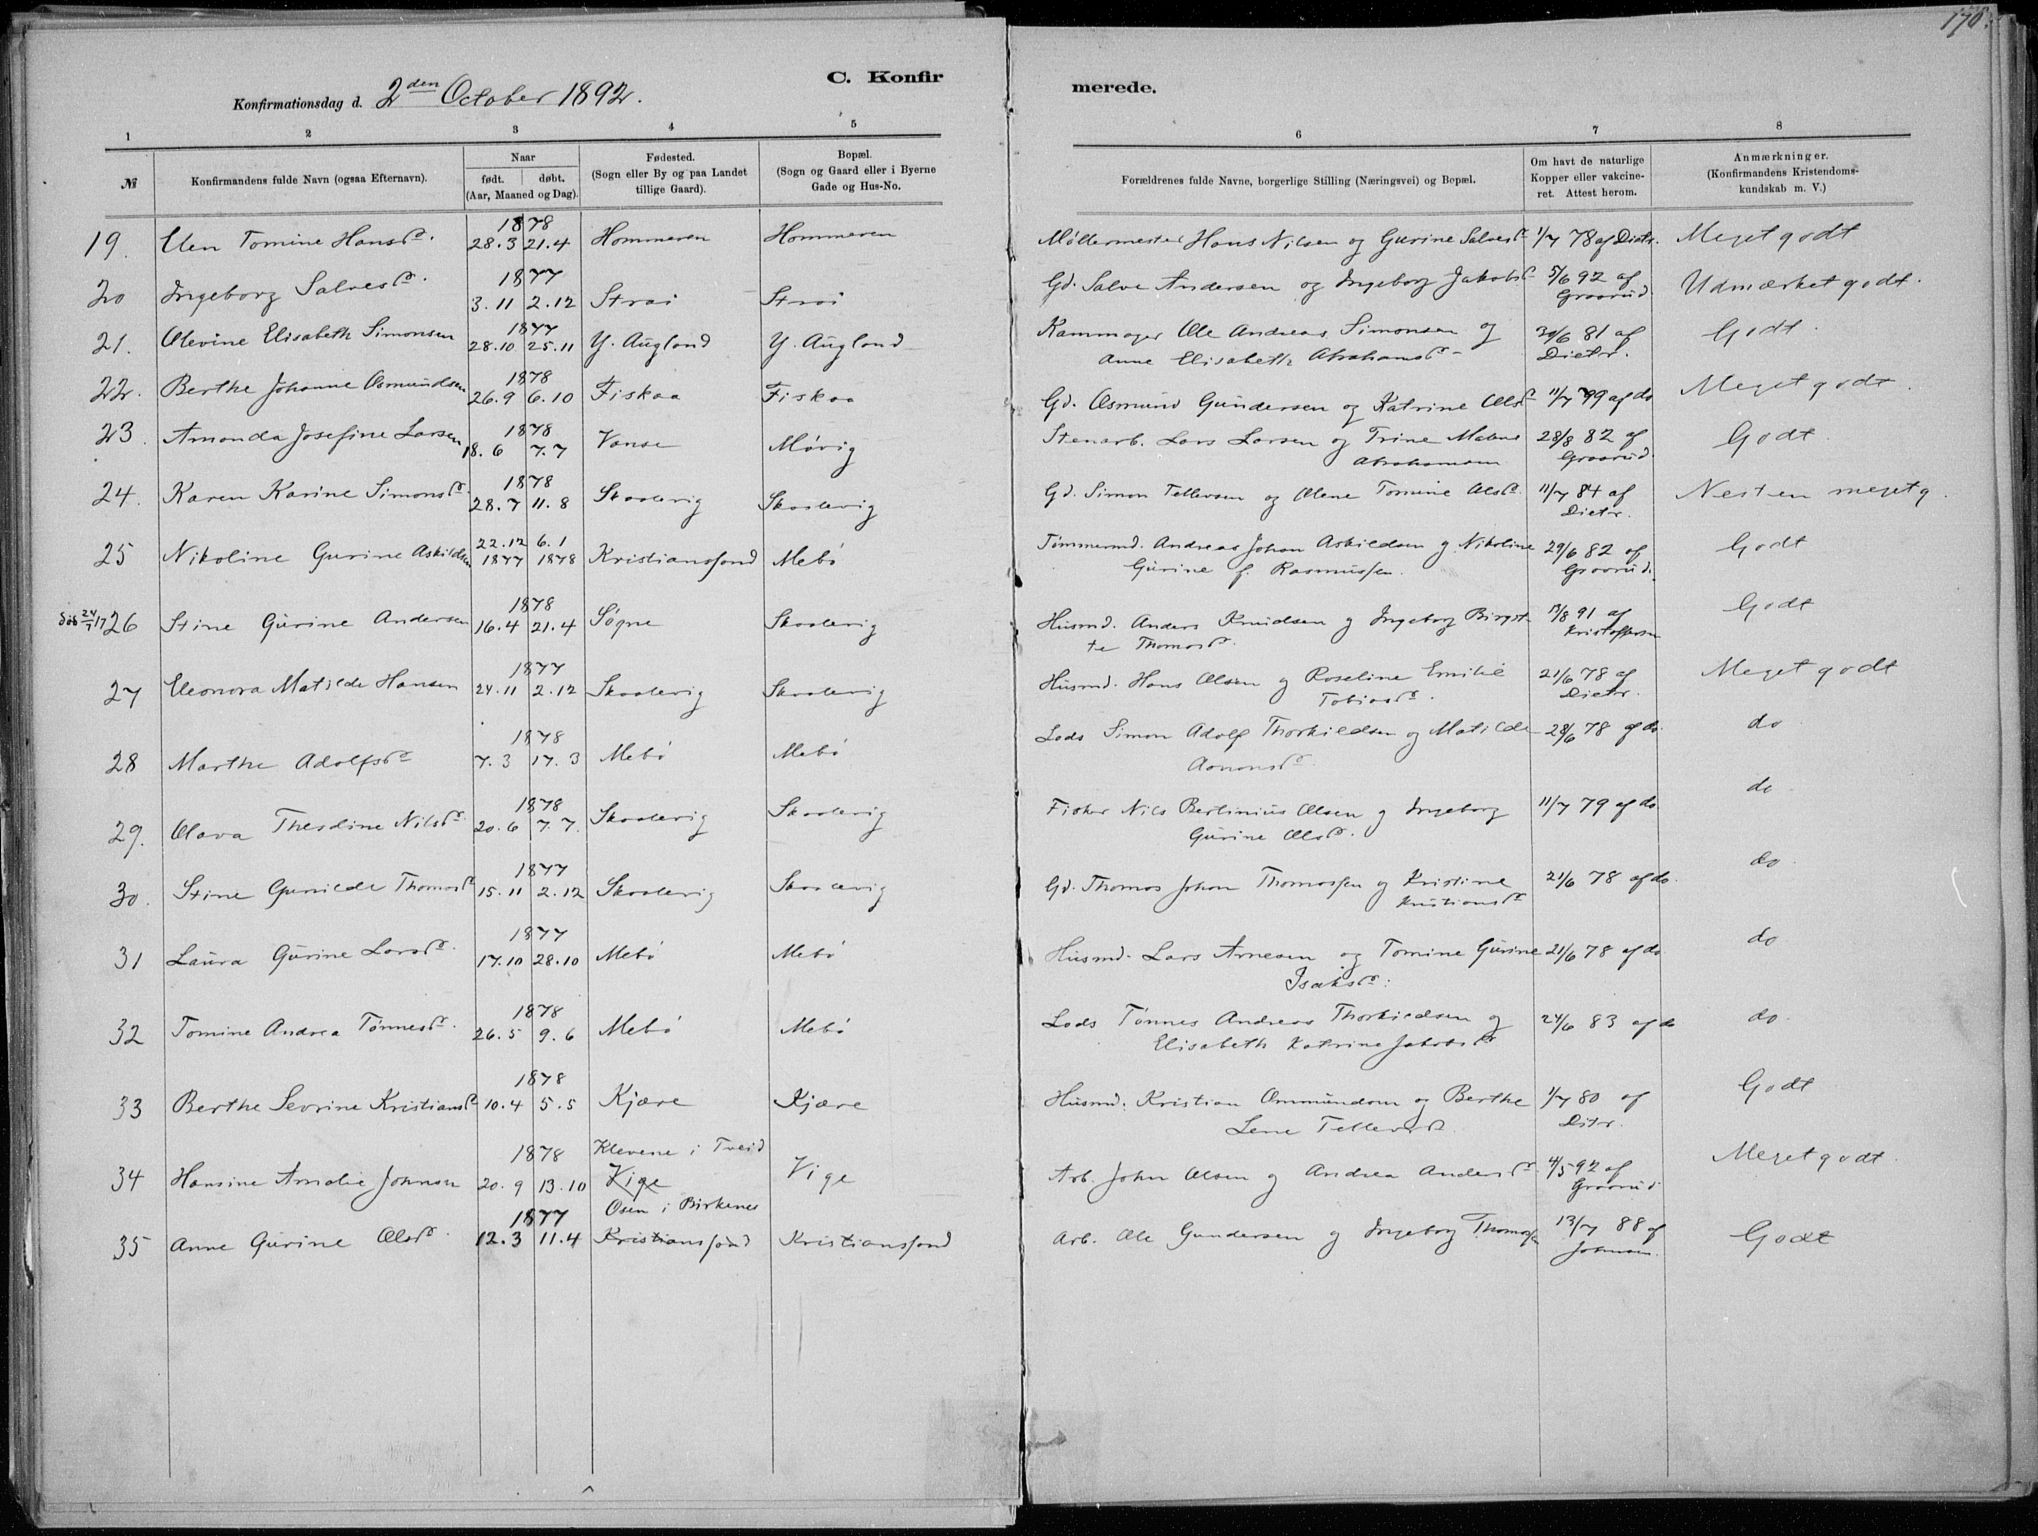 178.
C. Konfir
merede.
Konfirmationsdag d. 2den October 1892.
1 2 3 4 5 6 7 8
№ Konfirmandens fulde Navn (ogsaa Efternavn).
Naar
født. døbt.
(Aar, Maaned og Dag).
Fødested.
(Sogn eller By og paa Landet
tillige Gaard).
Bopæl.
(Sogn og Gaard eller i Byerne
Gade og Hus-No.
Forældrenes fulde Navne, borgerlige Stilling (Næringsvei) og Bopæl.
Om havt de naturlige
Kopper eller vakcine-
ret. Attest herom.
Anmærkninger.
(Konfirmandens Kristendoms-
kundskab m. V.)
1878
19. Elen Tomine Hansd. 28.3 21.4 Hommeren Hommeren Møllermester Hans Nilsen og Gurine Salvesd 1/7 78 af Dietr. Meget godt
1877
20 Ingeborg Salvesd. 3.11 2.12 Strai Strai Gd. Salve Andersen og Ingeborg Jakobsd 5/6 92 af Udmærket godt.
Graarud.
1877
21. Olevine Elisabeth Simonsen 28.10 25.11 Y. Augland Y. Augland Kammager Ole Andreas Simonsen og 30/6 81 af Godt.
Anne Elisabeth Abrahamsd Dietr.
1878
22. Berthe Johanne Osmundsen 26.9 6.10 Fiskaa Fiskaa Gd. Osmund Gundersen og Katrine Olsd 11/7 79 af do Meget godt.
1878
23. Amanda Josefine Larsen 18.6 7.7 Vanse Møvig Stenarb. Lars Larsen og Trine Malene 28/8 82 af Godt.
Abrahamsen Graarud.
1878
24. Karen Karine Simonsd. 28.7 11.8 Skaalevig Skaalevig Gd. Simon Tellevsen og Olene Tomine Olsd. 11/7 84 af Nesten meget g.
Dietr.
22.12 6.1
25 Nikoline Gurine Askildsen 1877 1878 Kristianssand Mebø Tømmermd. Andreas Johan Askildsen og Nikoline 29/6 82 af Godt
Gurine f. Rasmussen. Graarud.
1878
26 Stine Gurine Andersen 16.4 21.4 Søgne Skaalevig Husmd. Anders Knudsen og Ingeborg Birgit- 13/8 91 af Godt
te Thomasd. Kristoffersen
1877
27 Eleonora Matilde Hansen 24.11 2.12 Skaalevig Skaalevig Husmd. Hans Olsen og Roseline Emilie 21/6 78 af Meget godt
Tobiasd. Dietr.
1878
28 Marthe Adolfsd 7.3 17.3 Mebø Mebø Lods Simon Adolf Thorkildsen og Matilde 28/6 78 af do. do
Aanonsd.
1878
29. Olava Thesdine Nilsd. 20.6 7.7. Skaalevig Skaalevig Fisker Nils Bertinius Olsen og Ingeborg 11/7 79 af do. do
Gurine Olsd.
1877
30. Stine Gunilde Thomasd 15.11 2.12 Skaalevig Skaalevig Gd. Thomas Johan Thomassen og Kristine 21/6 78 af do. do.
Kristiansd
1877
31 Laura Gurine Larsd. 17.10 28.10 Mebø Mebø Husmd. Lars Arnesen og Tomine Gurine 21/6 78 af do. do
Isaksd.
1878
32 Tomine Andrea Tønnesd. 26.5 9.6 Mebø Mebø Lods Tønnes Andreas Thorkildsen og 24/6 83 af do do.
Elisabeth Katrine Jakobsd
1878
33 Berthe Sevrine Kristiansd 10.4 5.5 Kjære Kjære Husmd. Kristian Ommundsen og Berthe 1/7 80 af Godt
Lene Tellevsd. Ditr.
1878 Klevene i Tveid
34 Hansine Amalie Johnsen 20.9 13.10 Vige Vige Arb. John Olsen og Andrea Andersd. 4/5 92 af Meget godt.
Graarud
1877 Osen i Birkenes
35 Anne Gurine Olsd. 12.3 11.4 Kristianssand Kristianssand Arb. Ole Gundersen og Ingeborg Thomassen 13/7 88 af Godt
Johnsen.